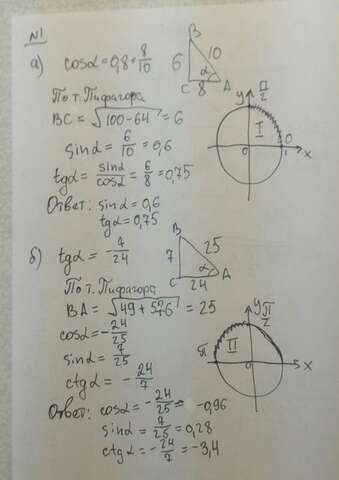 N1
а) cosα = 0,8 = 8/10
B
6 10
α
C 8 A
По т. Пифагора
BC = √100-64 = 6
sinα = 6/10 = 0,6
tgα = sinα/cosα = 6/8 = 0,75
Ответ: sinα = 0,6
tgα = 0,75
y π/2
I
0
0 1 x
б) tgα = -7/24
B
7 25
α
C 24 A
По т. Пифагора
BA = √49+576 = 25
cosα = -24/25
sinα = 7/25
ctgα = -24/7
Ответ: cosα = -24/25 = -0,96
sinα = 7/25 = 0,28
ctgα = -24/7 = -3,4
y π/2
π II
0 x